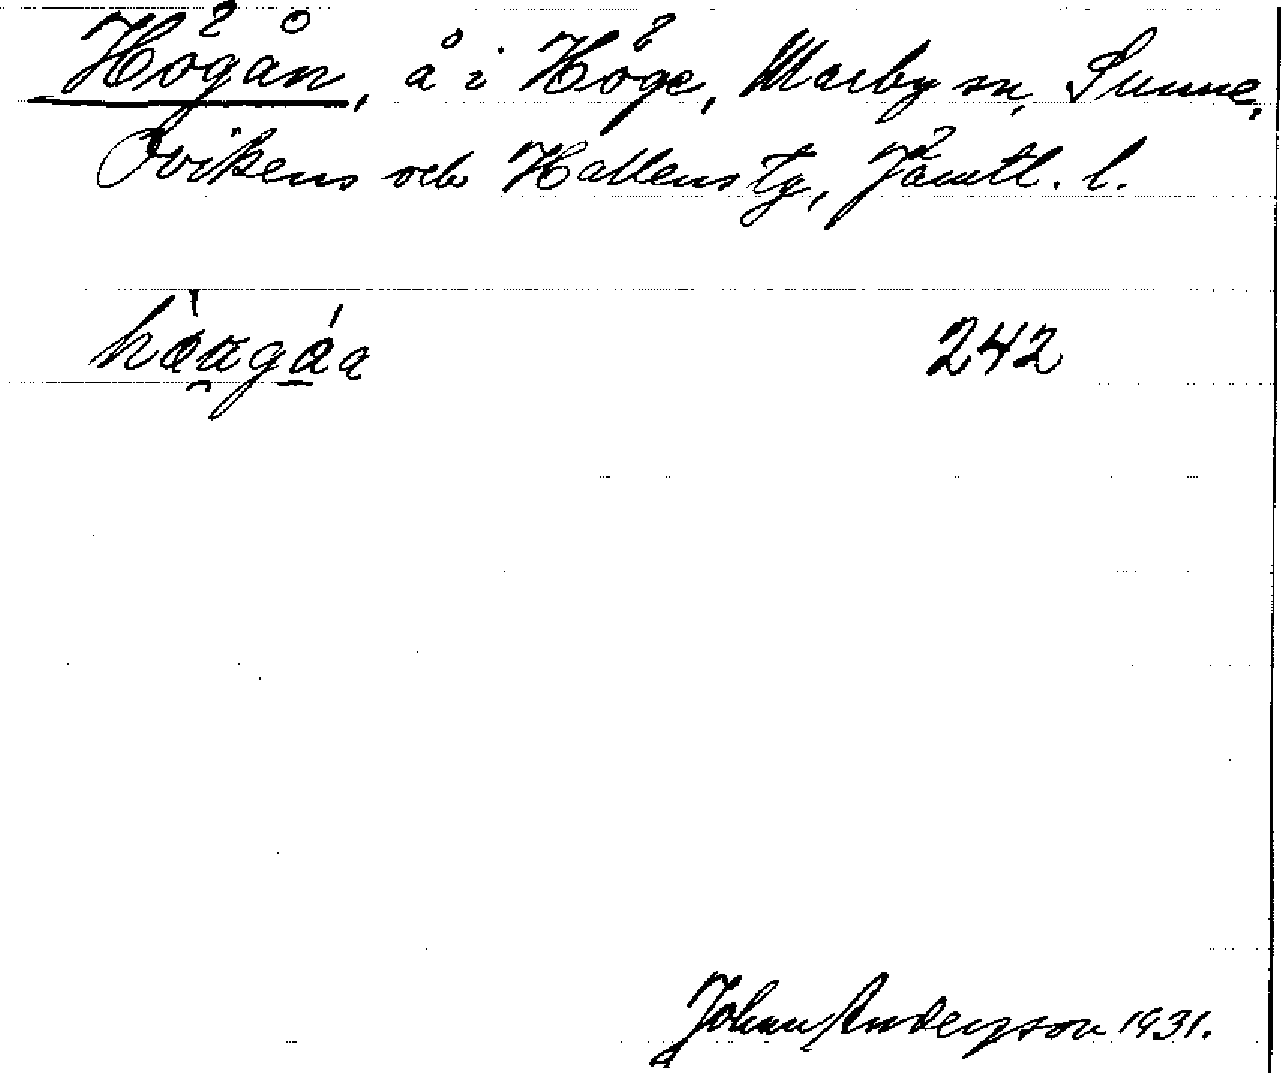 Högån, å i Höge, Marby sn, Sunne,
Ovikens och Hallens tg, Jämtl. l.
242
Johan Anderson 1931.